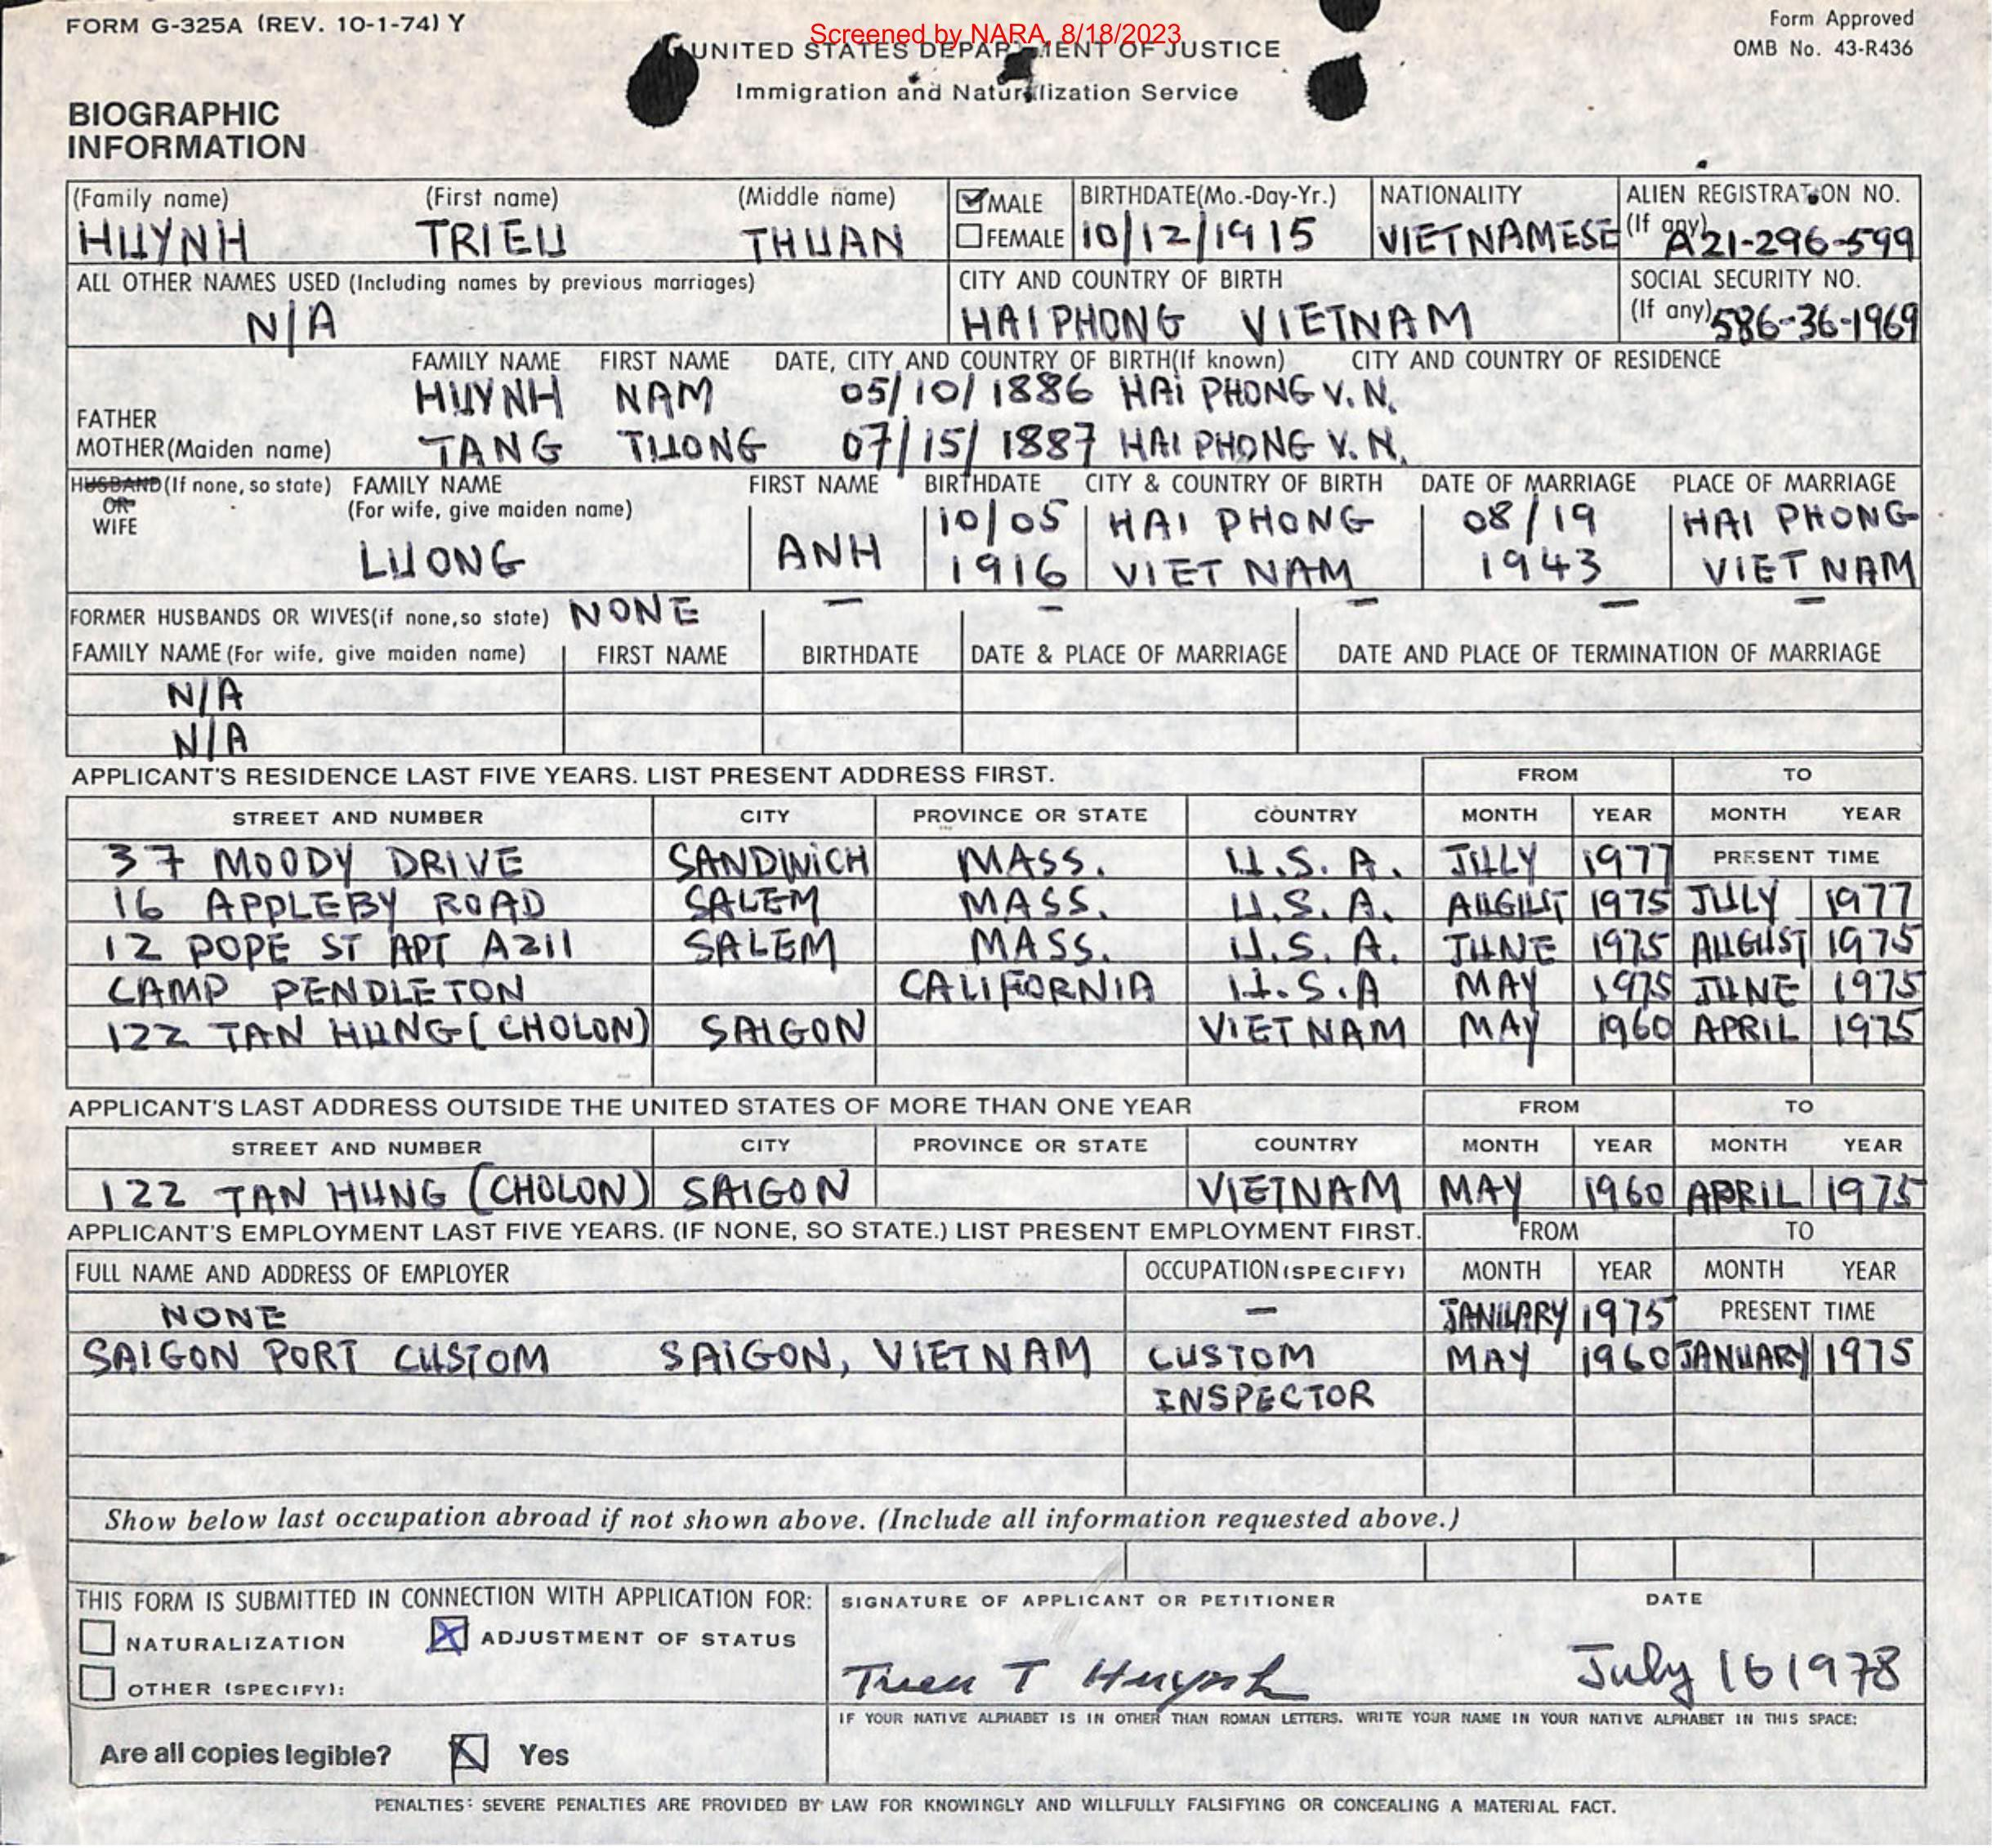 FORM G-325A (REV. 10-1-74) Y
Screened by NARA, 8/18/2023
Form Approved
OMB No. 43-R436
UNITED STATES DEPARTMENT OF JUSTICE
Immigration and Naturalization Service
BIOGRAPHIC
INFORMATION
(Family name) (First name) (Middle name) MALE BIRTHDATE(Mo.-Day-Yr.) NATIONALITY ALIEN REGISTRATION NO.
HUYNH TRIEU THUAN FEMALE 10/12/1915 VIETNAMESE (If any) A21-296-599
ALL OTHER NAMES USED (Including names by previous marriages) CITY AND COUNTRY OF BIRTH SOCIAL SECURITY NO.
N/A HAIPHONG VIETNAM (If any) 586-36-1969
FAMILY NAME FIRST NAME DATE, CITY AND COUNTRY OF BIRTH(If known) CITY AND COUNTRY OF RESIDENCE
FATHER HUYNH NAM 05/10/1886 HAI PHONG V.N.
MOTHER(Maiden name) TANG TUONG 07/15/1887 HAI PHONG V.N.
HUSBAND(If none, so state) FAMILY NAME FIRST NAME BIRTHDATE CITY & COUNTRY OF BIRTH DATE OF MARRIAGE PLACE OF MARRIAGE
OR (For wife, give maiden name) 10/05 HAI PHONG 08/19 HAI PHONG
WIFE LUONG ANH 1916 VIET NAM 1943 VIET NAM
FORMER HUSBANDS OR WIVES(if none,so state) NONE — — — — —
FAMILY NAME (For wife, give maiden name) FIRST NAME BIRTHDATE DATE & PLACE OF MARRIAGE DATE AND PLACE OF TERMINATION OF MARRIAGE
N/A
N/A
APPLICANT'S RESIDENCE LAST FIVE YEARS. LIST PRESENT ADDRESS FIRST. FROM TO
STREET AND NUMBER CITY PROVINCE OR STATE COUNTRY MONTH YEAR MONTH YEAR
37 MOODY DRIVE SANDWICH MASS. U.S.A. JULY 1977 PRESENT TIME
16 APPLEBY ROAD SALEM MASS. U.S.A. AUGUST 1975 JULY 1977
12 POPE ST APT A211 SALEM MASS. U.S.A. JUNE 1975 AUGUST 1975
CAMP PENDLETON CALIFORNIA U.S.A MAY 1975 JUNE 1975
122 TAN HUNG (CHOLON) SAIGON VIETNAM MAY 1960 APRIL 1975
APPLICANT'S LAST ADDRESS OUTSIDE THE UNITED STATES OF MORE THAN ONE YEAR FROM TO
STREET AND NUMBER CITY PROVINCE OR STATE COUNTRY MONTH YEAR MONTH YEAR
122 TAN HUNG (CHOLON) SAIGON VIETNAM MAY 1960 APRIL 1975
APPLICANT'S EMPLOYMENT LAST FIVE YEARS. (IF NONE, SO STATE.) LIST PRESENT EMPLOYMENT FIRST. FROM TO
FULL NAME AND ADDRESS OF EMPLOYER OCCUPATION (SPECIFY) MONTH YEAR MONTH YEAR
NONE — JANUARY 1975 PRESENT TIME
SAIGON PORT CUSTOM SAIGON, VIETNAM CUSTOM MAY 1960 JANUARY 1975
INSPECTOR
Show below last occupation abroad if not shown above. (Include all information requested above.)
THIS FORM IS SUBMITTED IN CONNECTION WITH APPLICATION FOR: SIGNATURE OF APPLICANT OR PETITIONER DATE
NATURALIZATION ADJUSTMENT OF STATUS
OTHER (SPECIFY): Trieu T Huynh July 16 1978
IF YOUR NATIVE ALPHABET IS IN OTHER THAN ROMAN LETTERS. WRITE YOUR NAME IN YOUR NATIVE ALPHABET IN THIS SPACE:
Are all copies legible? Yes
PENALTIES: SEVERE PENALTIES ARE PROVIDED BY LAW FOR KNOWINGLY AND WILLFULLY FALSIFYING OR CONCEALING A MATERIAL FACT.